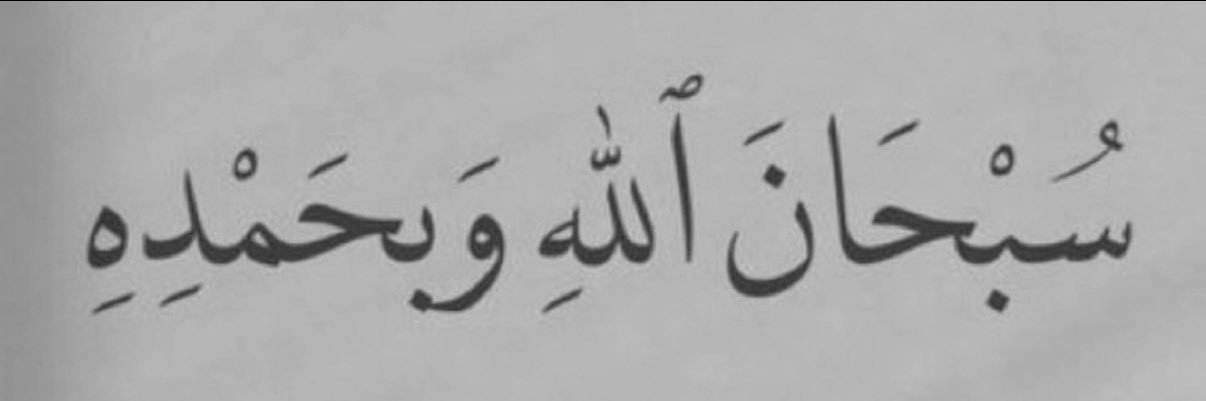 سُبْحَانَ ٱللّٰهِ وَبِحَمْدِهِ